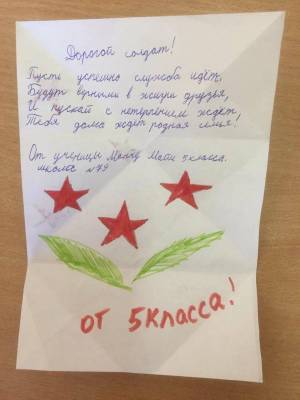 Дорогой солдат!
Пусть успешно служба идёт,
Будут верными в жизни друзья,
И пускай с нетерпением ждёт
Тебя дома ждёт родная семья!
От ученицы 5 класса.
школы №49
от 5 класса!